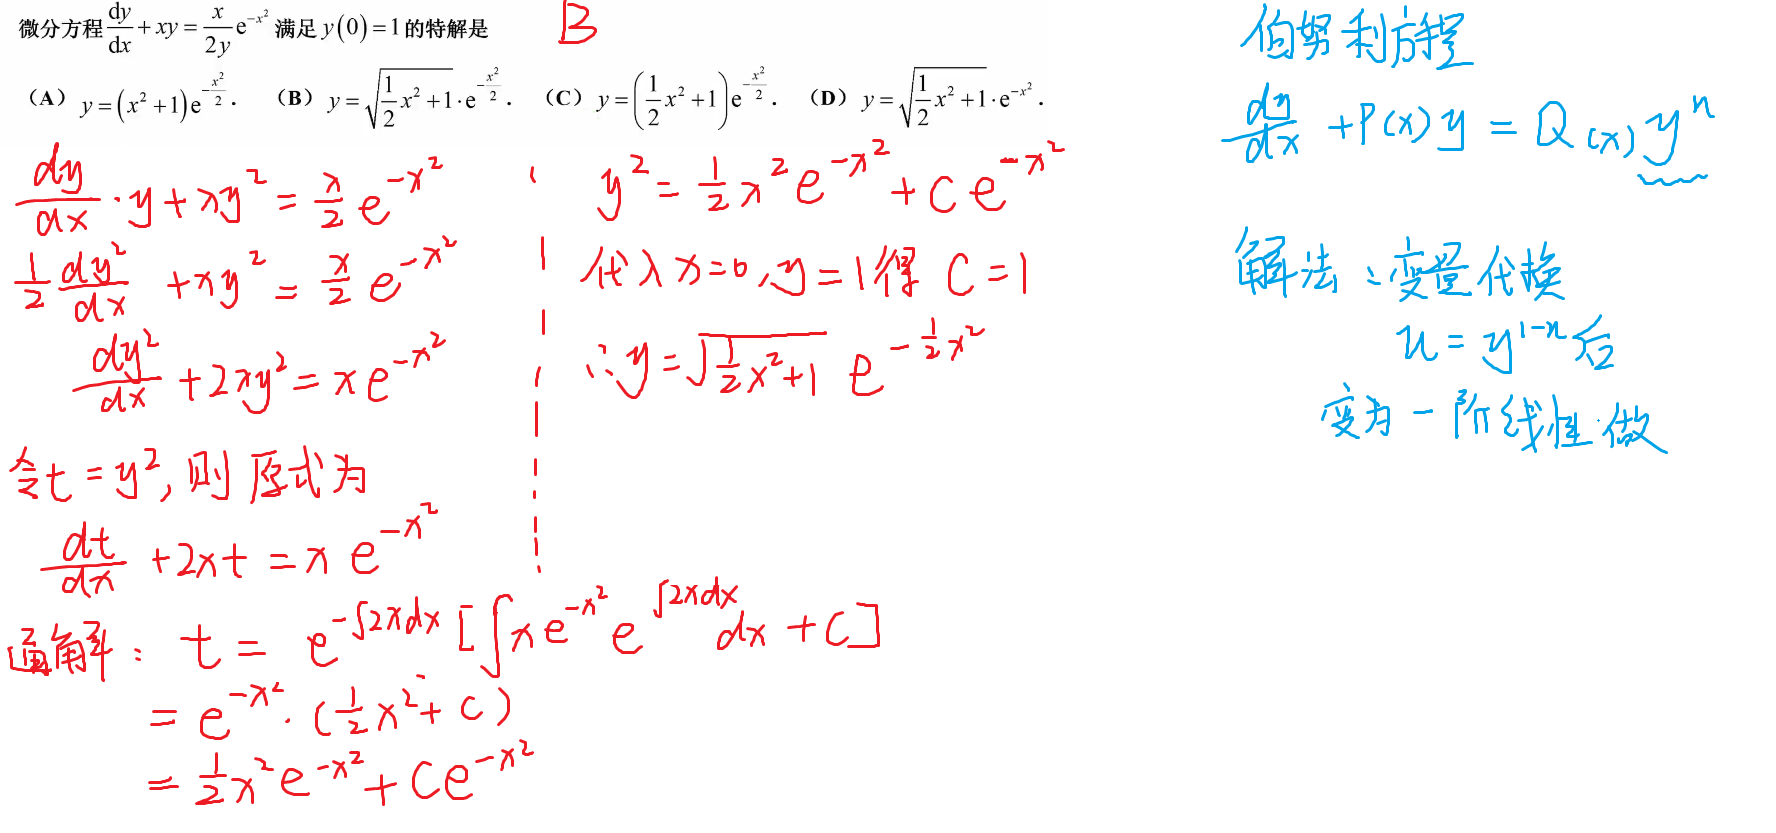 微分方程 dy/dx + xy = x/(2y) e^{-x²} 满足 y(0) = 1 的特解是
B
(A) y = (x² + 1)e^{-x²/2}. (B) y = √(1/2 x² + 1) · e^{-x²/2}. (C) y = (1/2 x² + 1)e^{-x²/2}. (D) y = √(1/2 x² + 1) · e^{-x²}.
dy/dx · y + xy² = x/2 e^{-x²}
1/2 dy²/dx + xy² = x/2 e^{-x²}
dy²/dx + 2xy² = x e^{-x²}
令t = y², 则原式为
dt/dx + 2xt = x e^{-x²}
通解: t = e^{-∫2xdx} [∫x e^{-x²} e^{∫2xdx} dx + C]
= e^{-x²} · (1/2 x² + C)
= 1/2 x² e^{-x²} + C e^{-x²}
y² = 1/2 x² e^{-x²} + C e^{-x²}
代入 x=0, y=1得 C=1
∴ y = √(1/2 x² + 1) e^{-1/2 x²}
伯努利方程
dy/dx + P(x) y = Q(x) y^n
解法:变量代换
u = y^{1-n} 后
变为一阶线性做